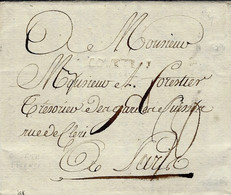 A Monsieur
Monsieur A. forestier
Tresorier des gardes Suisses
rue de Clery
A Paris